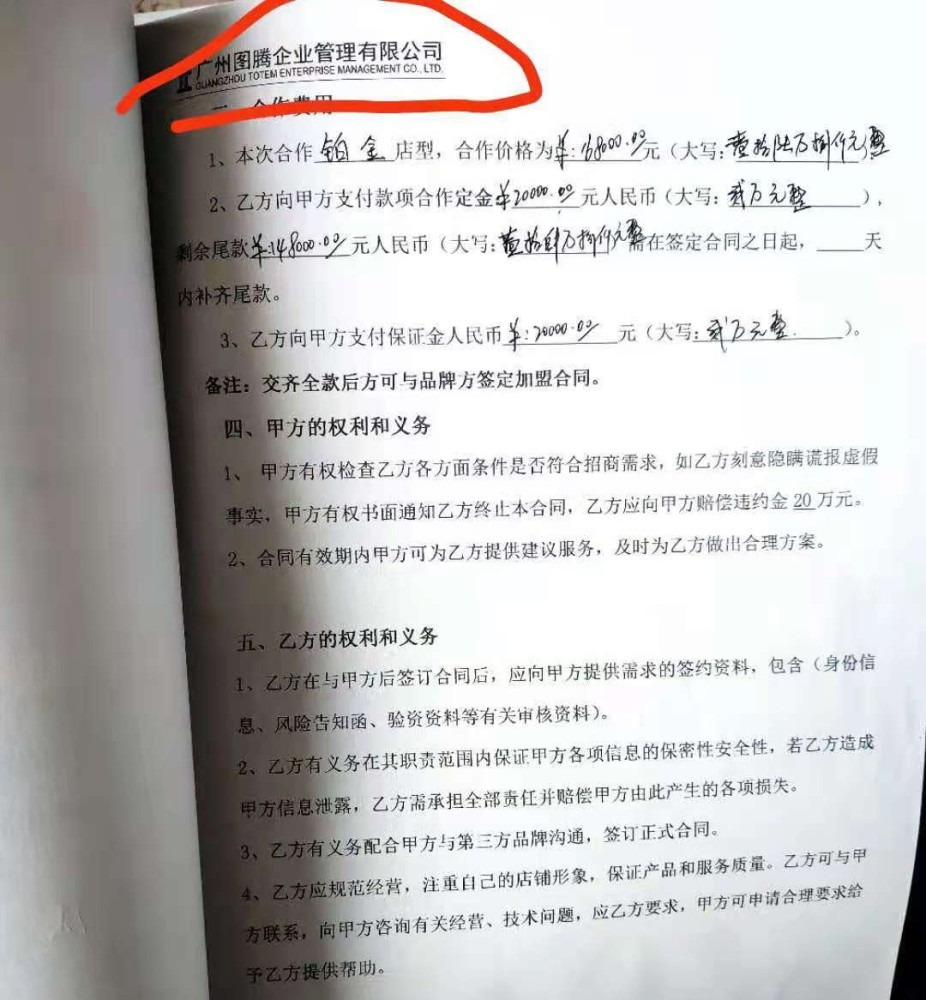 广州图腾企业管理有限公司
GUANGZHOU TOTEM ENTERPRISE MANAGEMENT CO., LTD.
合作费用
1、本次合作 铂金 店型，合作价格为¥:168000.00元（大写:壹拾陆万捌仟元整
2、乙方向甲方支付款项合作定金¥20000.00 元人民币（大写: 贰万元整 ），
剩余尾款¥:148000.00元人民币（大写:壹拾肆万捌仟元整需在签定合同之日起，____天
内补齐尾款。
3、乙方向甲方支付保证金人民币¥:20000.00 元（大写:贰万元整.____）。
备注：交齐全款后方可与品牌方签定加盟合同。
四、甲方的权利和义务
1、 甲方有权检查乙方各方面条件是否符合招商需求，如乙方刻意隐瞒谎报虚假
事实，甲方有权书面通知乙方终止本合同，乙方应向甲方赔偿违约金 20 万元。
2、合同有效期内甲方可为乙方提供建议服务，及时为乙方做出合理方案。
五、乙方的权利和义务
1、乙方在与甲方后签订合同后，应向甲方提供需求的签约资料，包含（身份信
息、风险告知函、验资资料等有关审核资料）。
2、乙方有义务在其职责范围内保证甲方各项信息的保密性安全性，若乙方造成
甲方信息泄露，乙方需承担全部责任并赔偿甲方由此产生的各项损失。
3、乙方有义务配合甲方与第三方品牌沟通，签订正式合同。
4、乙方应规范经营，注重自己的店铺形象，保证产品和服务质量。乙方可与甲
方联系，向甲方咨询有关经营、技术问题，应乙方要求，甲方可申请合理要求给
予乙方提供帮助。